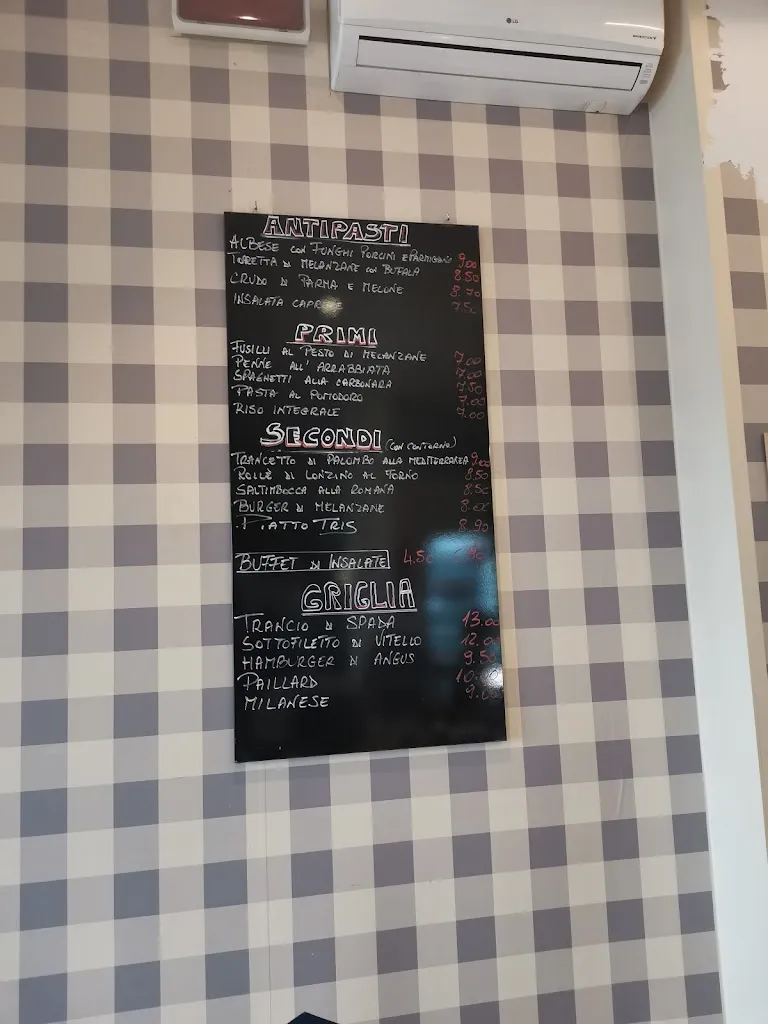 LG
ANTIPASTI
ALBESE CON FUNGHI PORCINI E PARMIGIANO 9,00
TORRETTA DI MELANZANE CON BUFALA 8.50
CRUDO DI PARMA E MELONE 8.70
INSALATA CAPRESE 7.50
PRIMI
FUSILLI AL PESTO DI MELANZANE 7.00
PENNE ALL'ARRABBIATA 7.00
SPAGHETTI ALLA CARBONARA 7.50
PASTA AL POMODORO 7.00
RISO INTEGRALE 7.00
SECONDI (CON CONTORNO)
TRANCETTO DI PALOMBO ALLA MEDITERRANEA 9.00
ROLLÈ DI LONZINO AL FORNO 8.50
SALTIMBOCCA ALLA ROMANA 8.50
BURGER DI MELANZANE 8.00
PIATTO TRIS 8.90
BUFFET DI INSALATE 4.50
GRIGLIA
TRANCIO DI SPADA 13.00
SOTTOFILETTO DI VITELLO 12.00
HAMBURGER DI ANGUS 9.50
PAILLARD 10.00
MILANESE 9.00